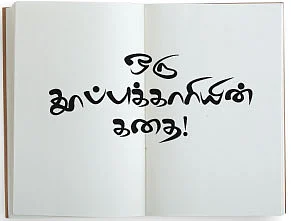 ஒரு
தூப்புக்காரியின்
கதை!